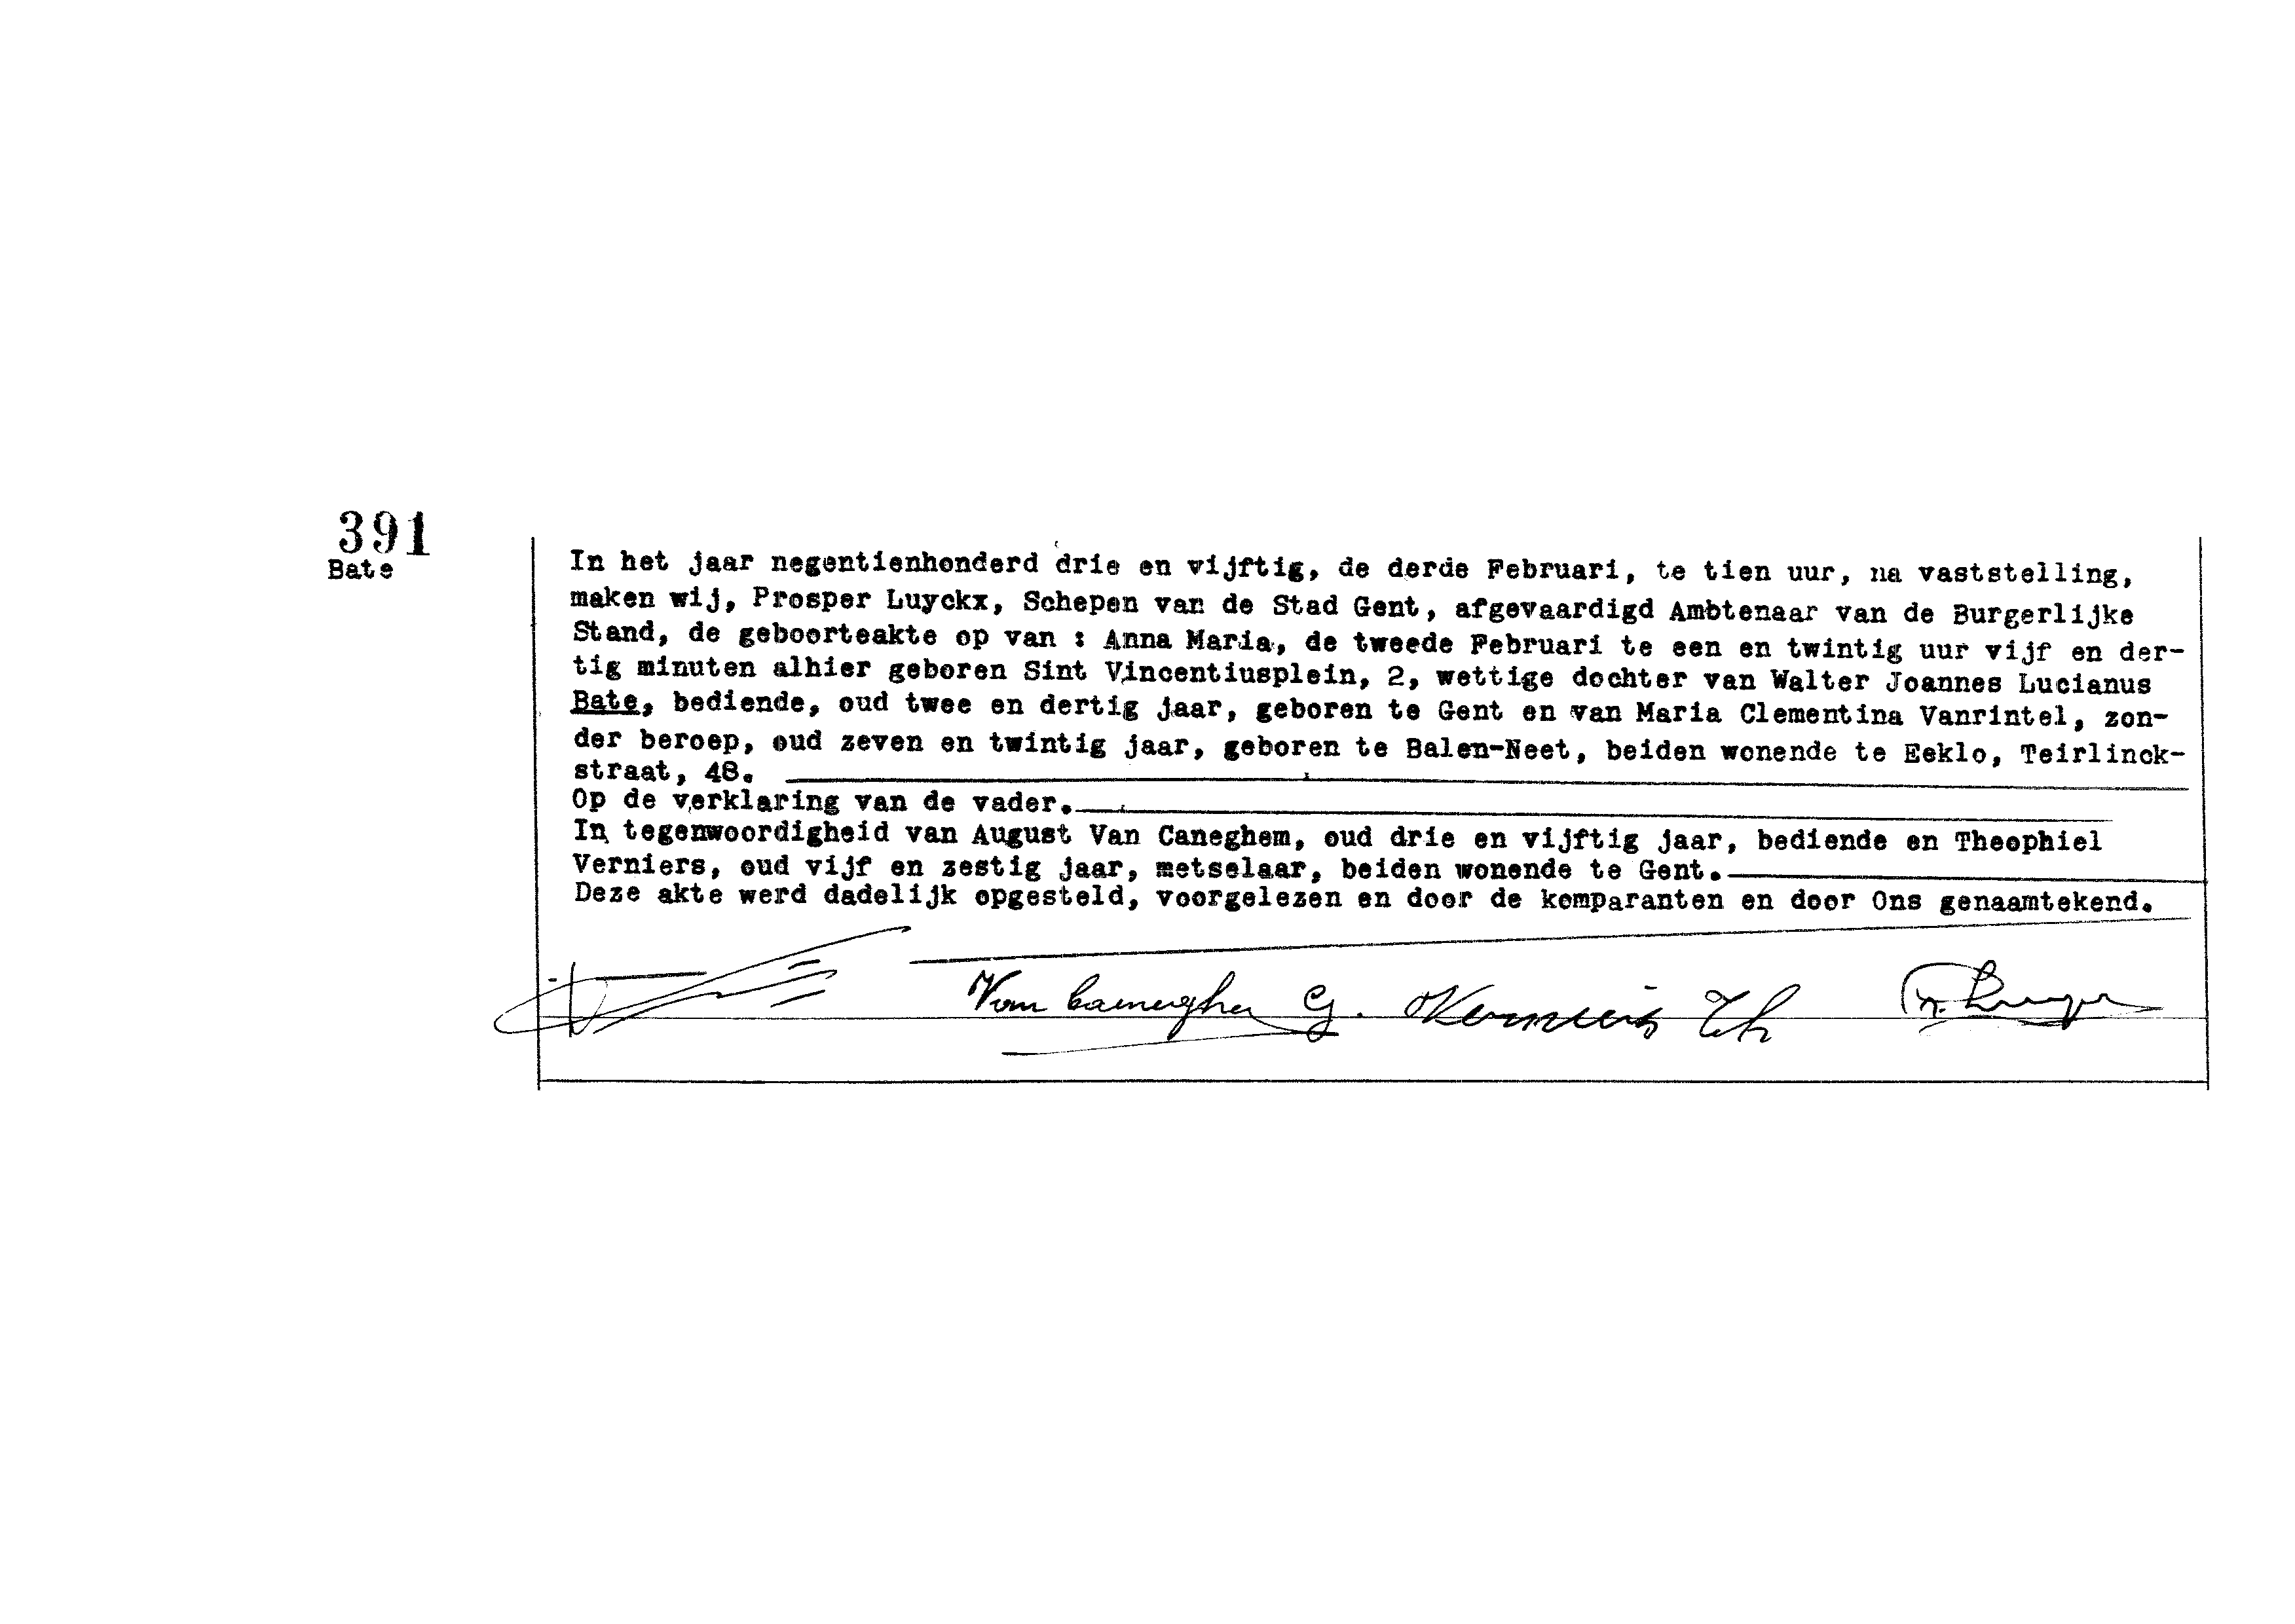 391
Bate
In het jaar negentienhonderd drie en vijftig, de derde Februari, te tien uur, na vaststelling,
maken wij, Prosper Luyckx, Schepen van de Stad Gent, afgevaardigd Ambtenaar van de Burgerlijke
Stand, de geboorteakte op van : Anna Maria, de tweede Februari te een en twintig uur vijf en der-
tig minuten alhier geboren Sint Vincentiusplein, 2, wettige dochter van Walter Joannes Lucianus
Bate, bediende, oud twee en dertig jaar, geboren te Gent en van Maria Clementina Vanrintel, zon-
der beroep, oud zeven en twintig jaar, geboren te Balen-Neet, beiden wonende te Eeklo, Teirlinck-
straat, 48.
Op de verklaring van de vader.
In tegenwoordigheid van August Van Caneghem, oud drie en vijftig jaar, bediende en Theophiel
Verniers, oud vijf en zestig jaar, metselaar, beiden wonende te Gent.
Deze akte werd dadelijk opgesteld, voorgelezen en door de komparanten en door Ons genaamtekend.
Verniers Th